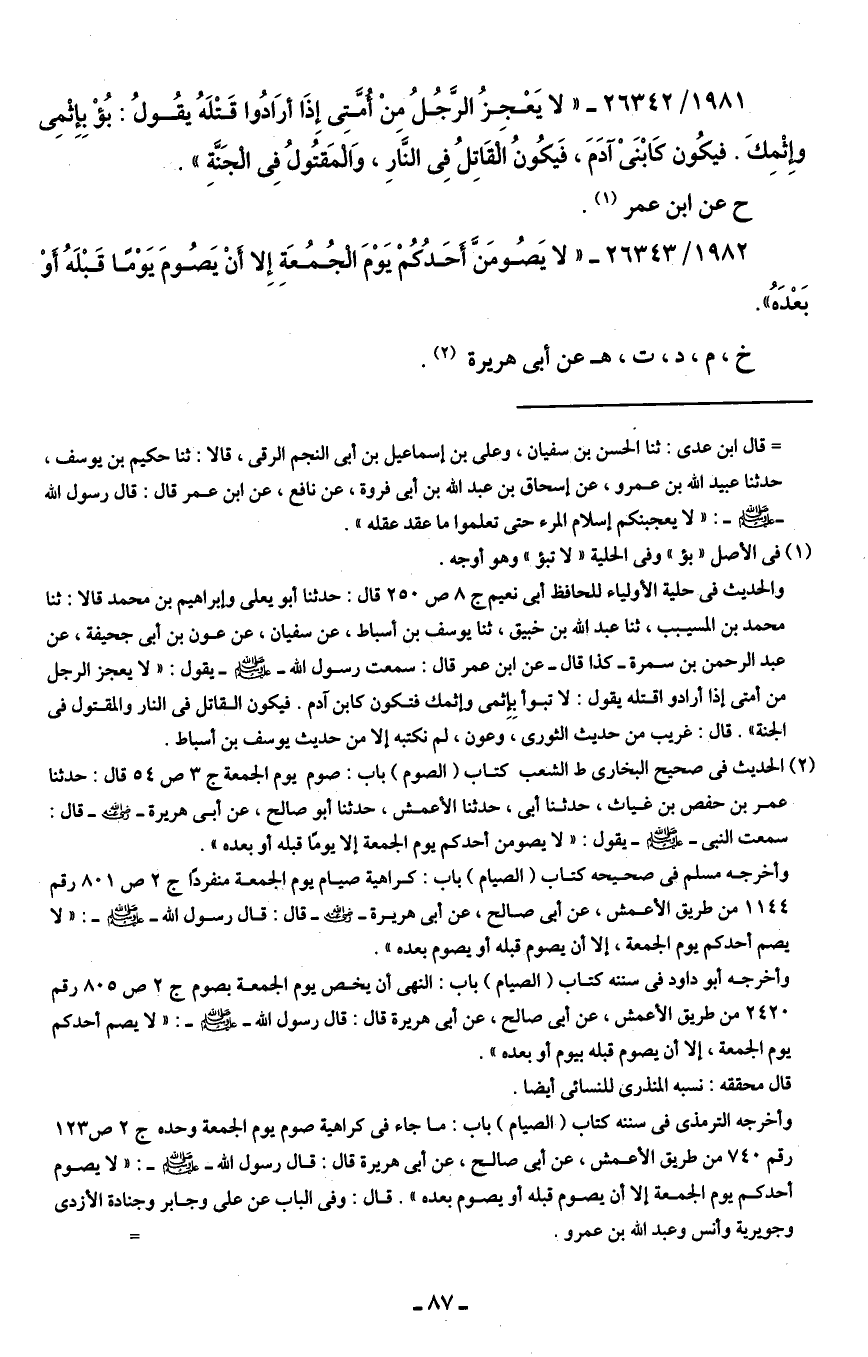 ١٩٨١/ ٢٦٣٤٢ ـ « لا يَعْجِزُ الرَّجُلُ مِنْ أُمَّتِى إِذَا أرَادُوا قَتْلَهُ يقُولُ : بُؤْ بِإِثْمِى
وإِثْمِكَ . فيكُون كَابْنَىْ آدَمَ ، فَيكُونُ الْقَاتِلُ فِى النَّارِ ، وَالْمَقتُولُ فِى الْجَنَّةِ » .
ح عن ابن عمر (١) .
١٩٨٢/ ٢٦٣٤٣ ـ « لا يَصُومَنَّ أَحَدُكُمْ يَوْمَ الْجُمُعَةِ إِلا أَنْ يَصُومَ يَوْمًا قَبْلَهُ أَوْ
بَعْدَهُ».
خ ، م ، د ، ت ، هـ عن أبى هريرة (٢) .
= قال ابن عدى : ثنا الحسن بن سفيان ، وعلى بن إسماعيل بن أبى النجم الرقى ، قالا : ثنا حكيم بن يوسف ،
حدثنا عبيد الله بن عمرو ، عن إسحاق بن عبد الله بن أبى فروة ، عن نافع ، عن ابن عمر قال : قال رسول الله
ـ ﷺ ـ : « لا يعجبنكم إسلام المرء حتى تعلموا ما عقد عقله » .
(١) فى الأصل « بؤ » وفى الحلية « لا تبؤ » وهو أوجه .
والحديث فى حلية الأولياء للحافظ أبى نعيم ج ٨ ص ٢٥٠ قال : حدثنا أبو يعلى وإبراهيم بن محمد قالا : ثنا
محمد بن المسيب ، ثنا عبد الله بن خبيق ، ثنا يوسف بن أسباط ، عن سفيان ، عن عون بن أبى جحيفة ، عن
عبد الرحمن بن سمرة ـ كذا قال ـ عن ابن عمر قال : سمعت رسول الله ـ ﷺ ـ يقول : « لا يعجز الرجل
من أمتى إذا أرادو اقتله يقول : لا تبوأ بِإثمى وإثمك فتكون كابن آدم . فيكون القاتل فى النار والمقتول فى
الجنة» . قال : غريب من حديث الثورى ، وعون ، لم نكتبه إلا من حديث يوسف بن أسباط .
(٢) الحديث فى صحيح البخارى ط الشعب كتاب ( الصوم ) باب : صوم يوم الجمعة ج ٣ ص ٥٤ قال : حدثنا
عمر بن حفص بن غياث ، حدثنا أبى ، حدثنا الأعمش ، حدثنا أبو صالح ، عن أبى هريرة ـ رضي الله عنه ـ قال :
سمعت النبى ـ ﷺ ـ يقول : « لا يصومن أحدكم يوم الجمعة إلا يومًا قبله أو بعده » .
وأخرجه مسلم فى صحيحه كتاب ( الصيام ) باب : كراهية صيام يوم الجمعة منفردًا ج ٢ ص ٨٠١ رقم
١١٤٤ من طريق الأعمش ، عن أبى صالح ، عن أبى هريرة ـ رضي الله عنه ـ قال : قال رسول الله ـ ﷺ ـ : « لا
يصم أحدكم يوم الجمعة ، إلا أن يصوم قبله أو يصوم بعده » .
وأخرجه أبو داود فى سننه كتاب ( الصيام ) باب : النهى أن يخص يوم الجمعة بصوم ج ٢ ص ٨٠٥ رقم
٢٤٢٠ من طريق الأعمش ، عن أبى صالح ، عن أبى هريرة قال : قال رسول الله ـ ﷺ ـ : « لا يصم أحدكم
يوم الجمعة ، إلا أن يصوم قبله بيوم أو بعده » .
قال محققه : نسبه المنذرى للنسائى أيضا .
وأخرجه الترمذى فى سننه كتاب ( الصيام ) باب : ما جاء فى كراهية صوم يوم الجمعة وحده ج ٢ ص١٢٣
رقم ٧٤٠ من طريق الأعمش ، عن أبى صالح ، عن أبى هريرة قال : قال رسول الله ـ ﷺ ـ : « لا يصوم
أحدكم يوم الجمعة إلا أن يصوم قبله أو يصوم بعده » . قال : وفى الباب عن على وجابر وجنادة الأزدى
وجويرية وأنس وعبد الله بن عمرو . =
ـ ٨٧ ـ